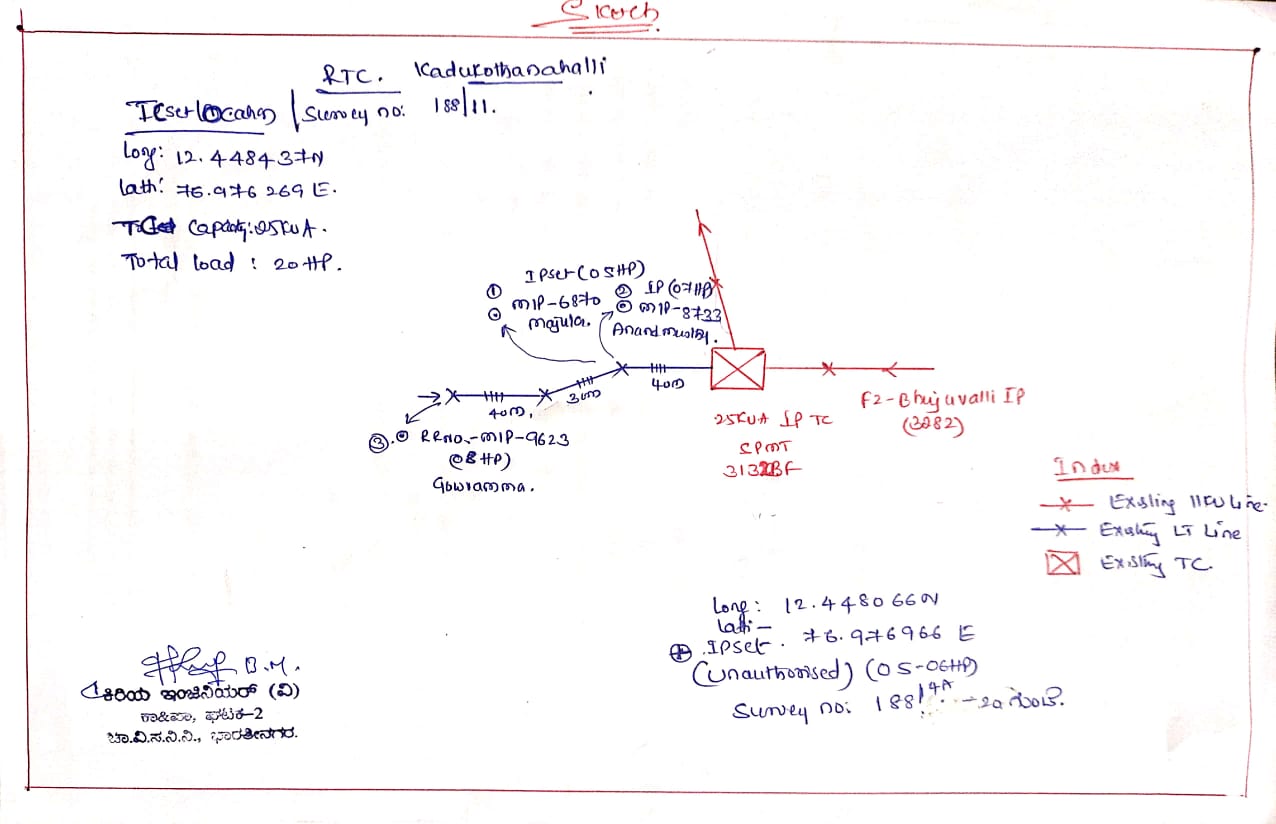 Sketch.
RTC. Kadukothanahalli
Survey no: 188/11.
Long: 12.448437N
lath: 76.976269 E.
Capacity: 25KVA.
Total load : 20 HP.
① IPset (05HP)
MIP-6870
Majula.
② IP (07HP)
MIP-8733
40m
30m
40m,
③. RRNO.-MIP-9623
(08HP)
Gowramma.
25KVA IP TC
F2-Bhujuvalli IP
(3282)
Index
Existing 11KV Line.
Existing LT Line
Existing TC.
Long: 12.448066N
Latti- 76.976966 E
IPset.
(Unauthorised) (05-06HP)
Survey no: 188/4A -20 ಗುಂಟೆ.
B.M.
ಕಿರಿಯ ಇಂಜಿನಿಯರ್ (ವಿ)
ಕಾ&ಪಾ, ಘಟಕ-2
ಚಾ.ವಿ.ಸ.ನಿ.ನಿ., ಭಾರತೀನಗರ.